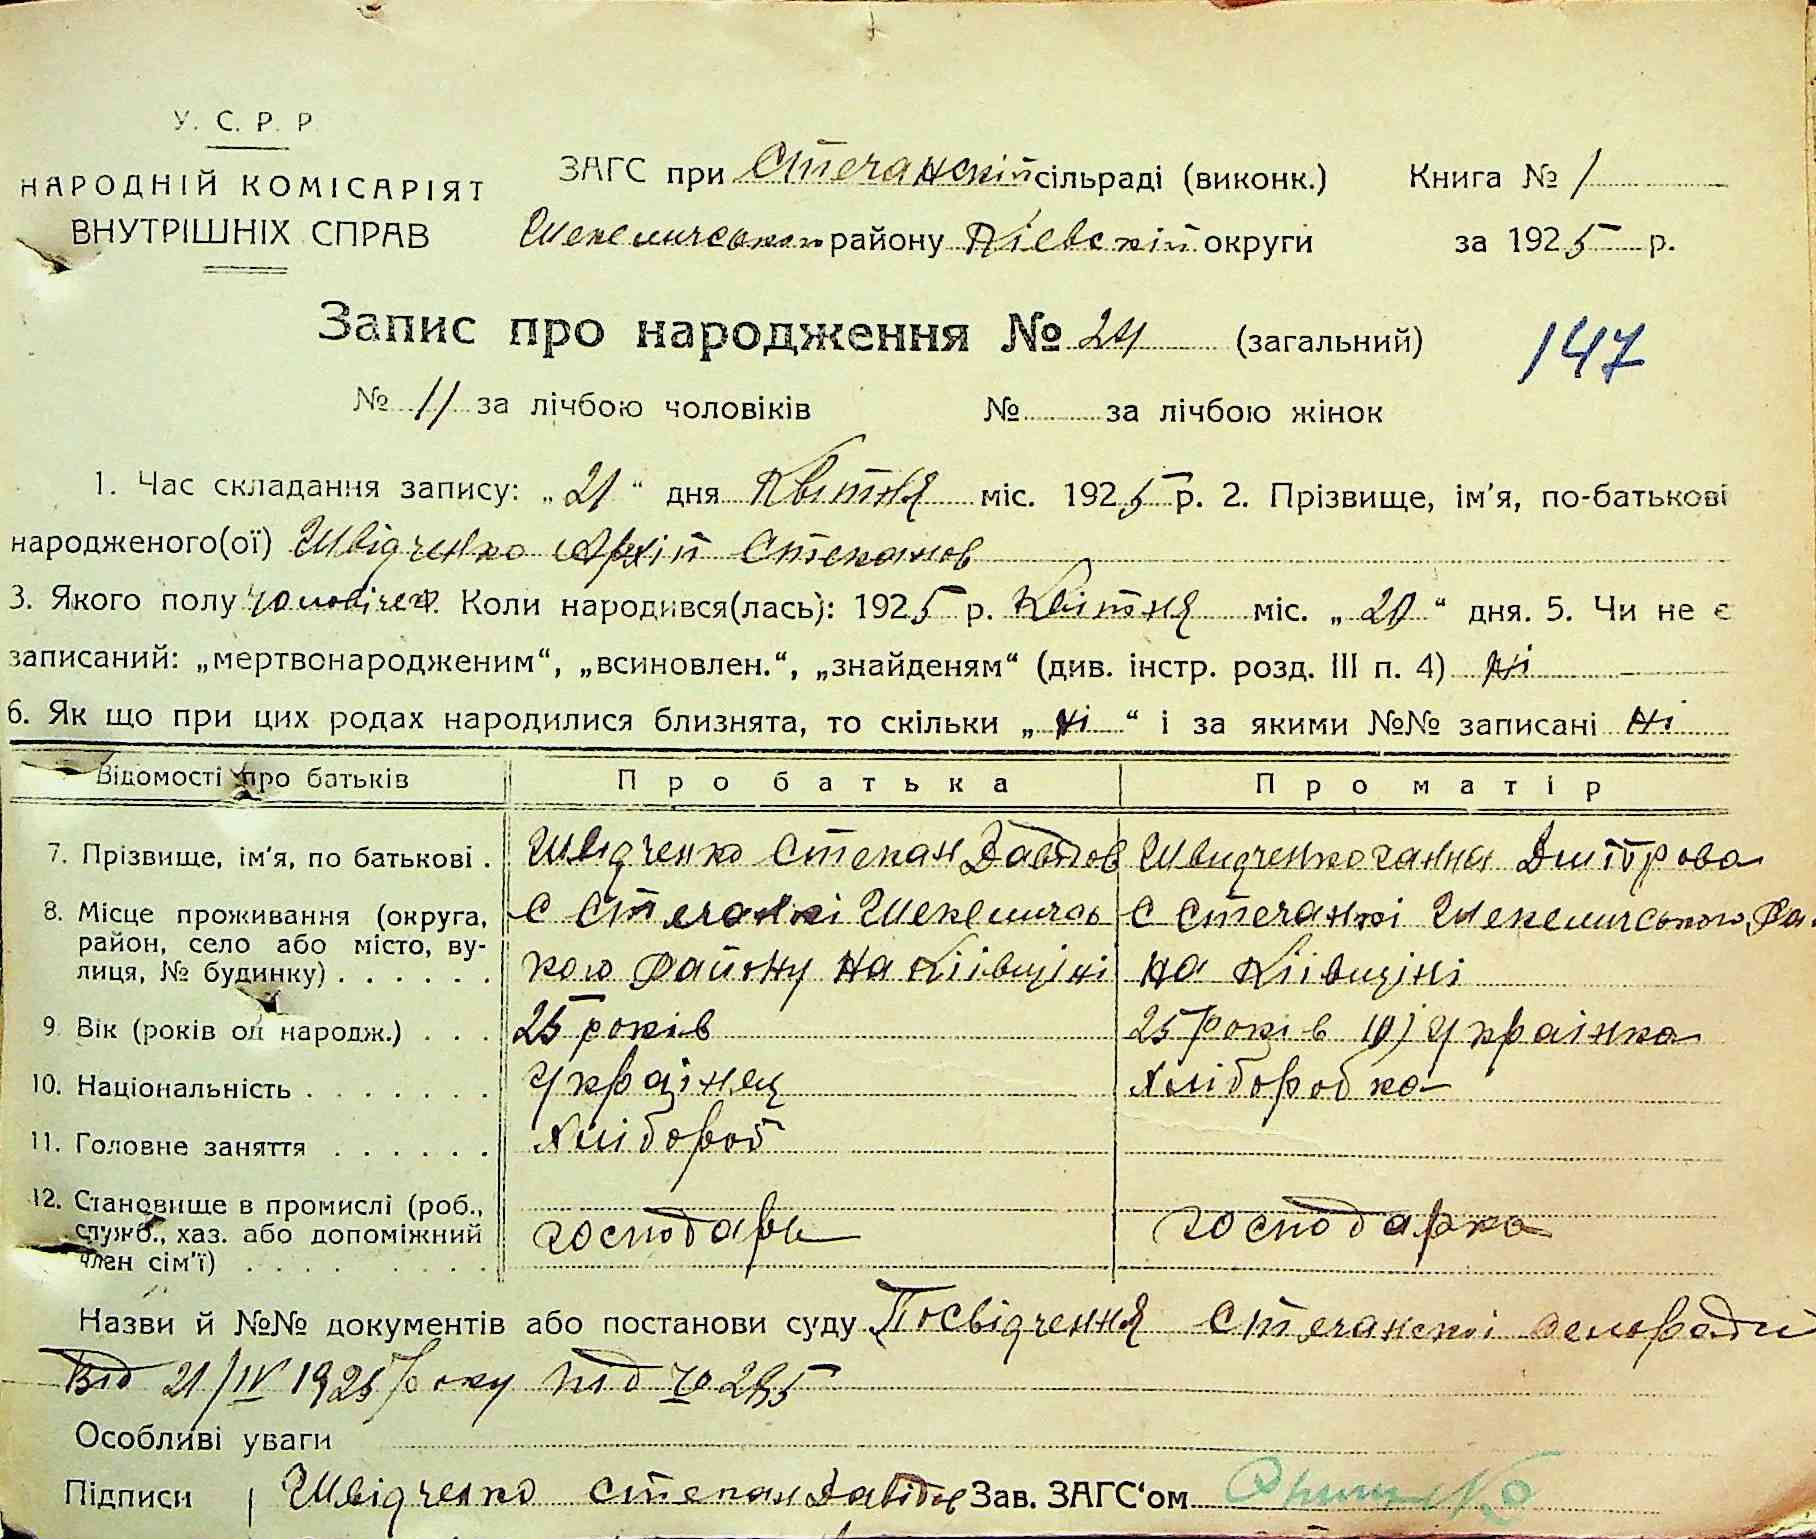 У. С. Р. Р
НАРОДНІЙ КОМІСАРІЯТ
ВНУТРІШНІХ СПРАВ
ЗАГС при Стечанскій сільраді (виконк.)
Шекеличського району Кіевскій округи
Книга № 1
за 1925 р.
Запис про народження № 24 (загальний)
147
№ 11 за лічбою чоловіків № за лічбою жінок
1. Час складання запису: „21“ дня Квітня міс. 1925 р. 2. Прізвище, ім'я, по-батькові
народженого(ої) Швідченко Архіп Степанов
3. Якого полу чоловічеє. Коли народився(лась): 1925 р. Квітня міс. „20“ дня. 5. Чи не є
записаний: „мертвонародженим“, „всиновлен.“, „знайденям“ (див. інстр. розд. III п. 4) ні
6. Як що при цих родах народилися близнята, то скільки „ні“ і за якими №№ записані ні
Відомості про батьків Про батька Про матір
7. Прізвище, ім'я, по батькові . Швідченко Степан Давідов Швидченко ганна Дмітрова
8. Місце проживання (округа, район, село або місто, вулиця, № будинку) . . . . . .
с Стечанкі Шекеличсь
кого району на Кіівщіні
с Стечанкі Шекеличського Ра.
на Кіівщіні
9. Вік (років од народж.) . . . 25 років 25 років 10) Украінка
10. Національність . . . . . . . Украінец хліборобка
11. Головне заняття . . . . . . Хлібороб
12. Становище в промислі (роб., служб., хаз. або допоміжний член сім'ї) . . . . господарь господарка
Назви й №№ документів або постанови суду Посвідчення Стечанскоі
Від 21/IV 1925 року під № 285
Особливі уваги
Підписи Швідченко Степан Давідов Зав. ЗАГС‘ом